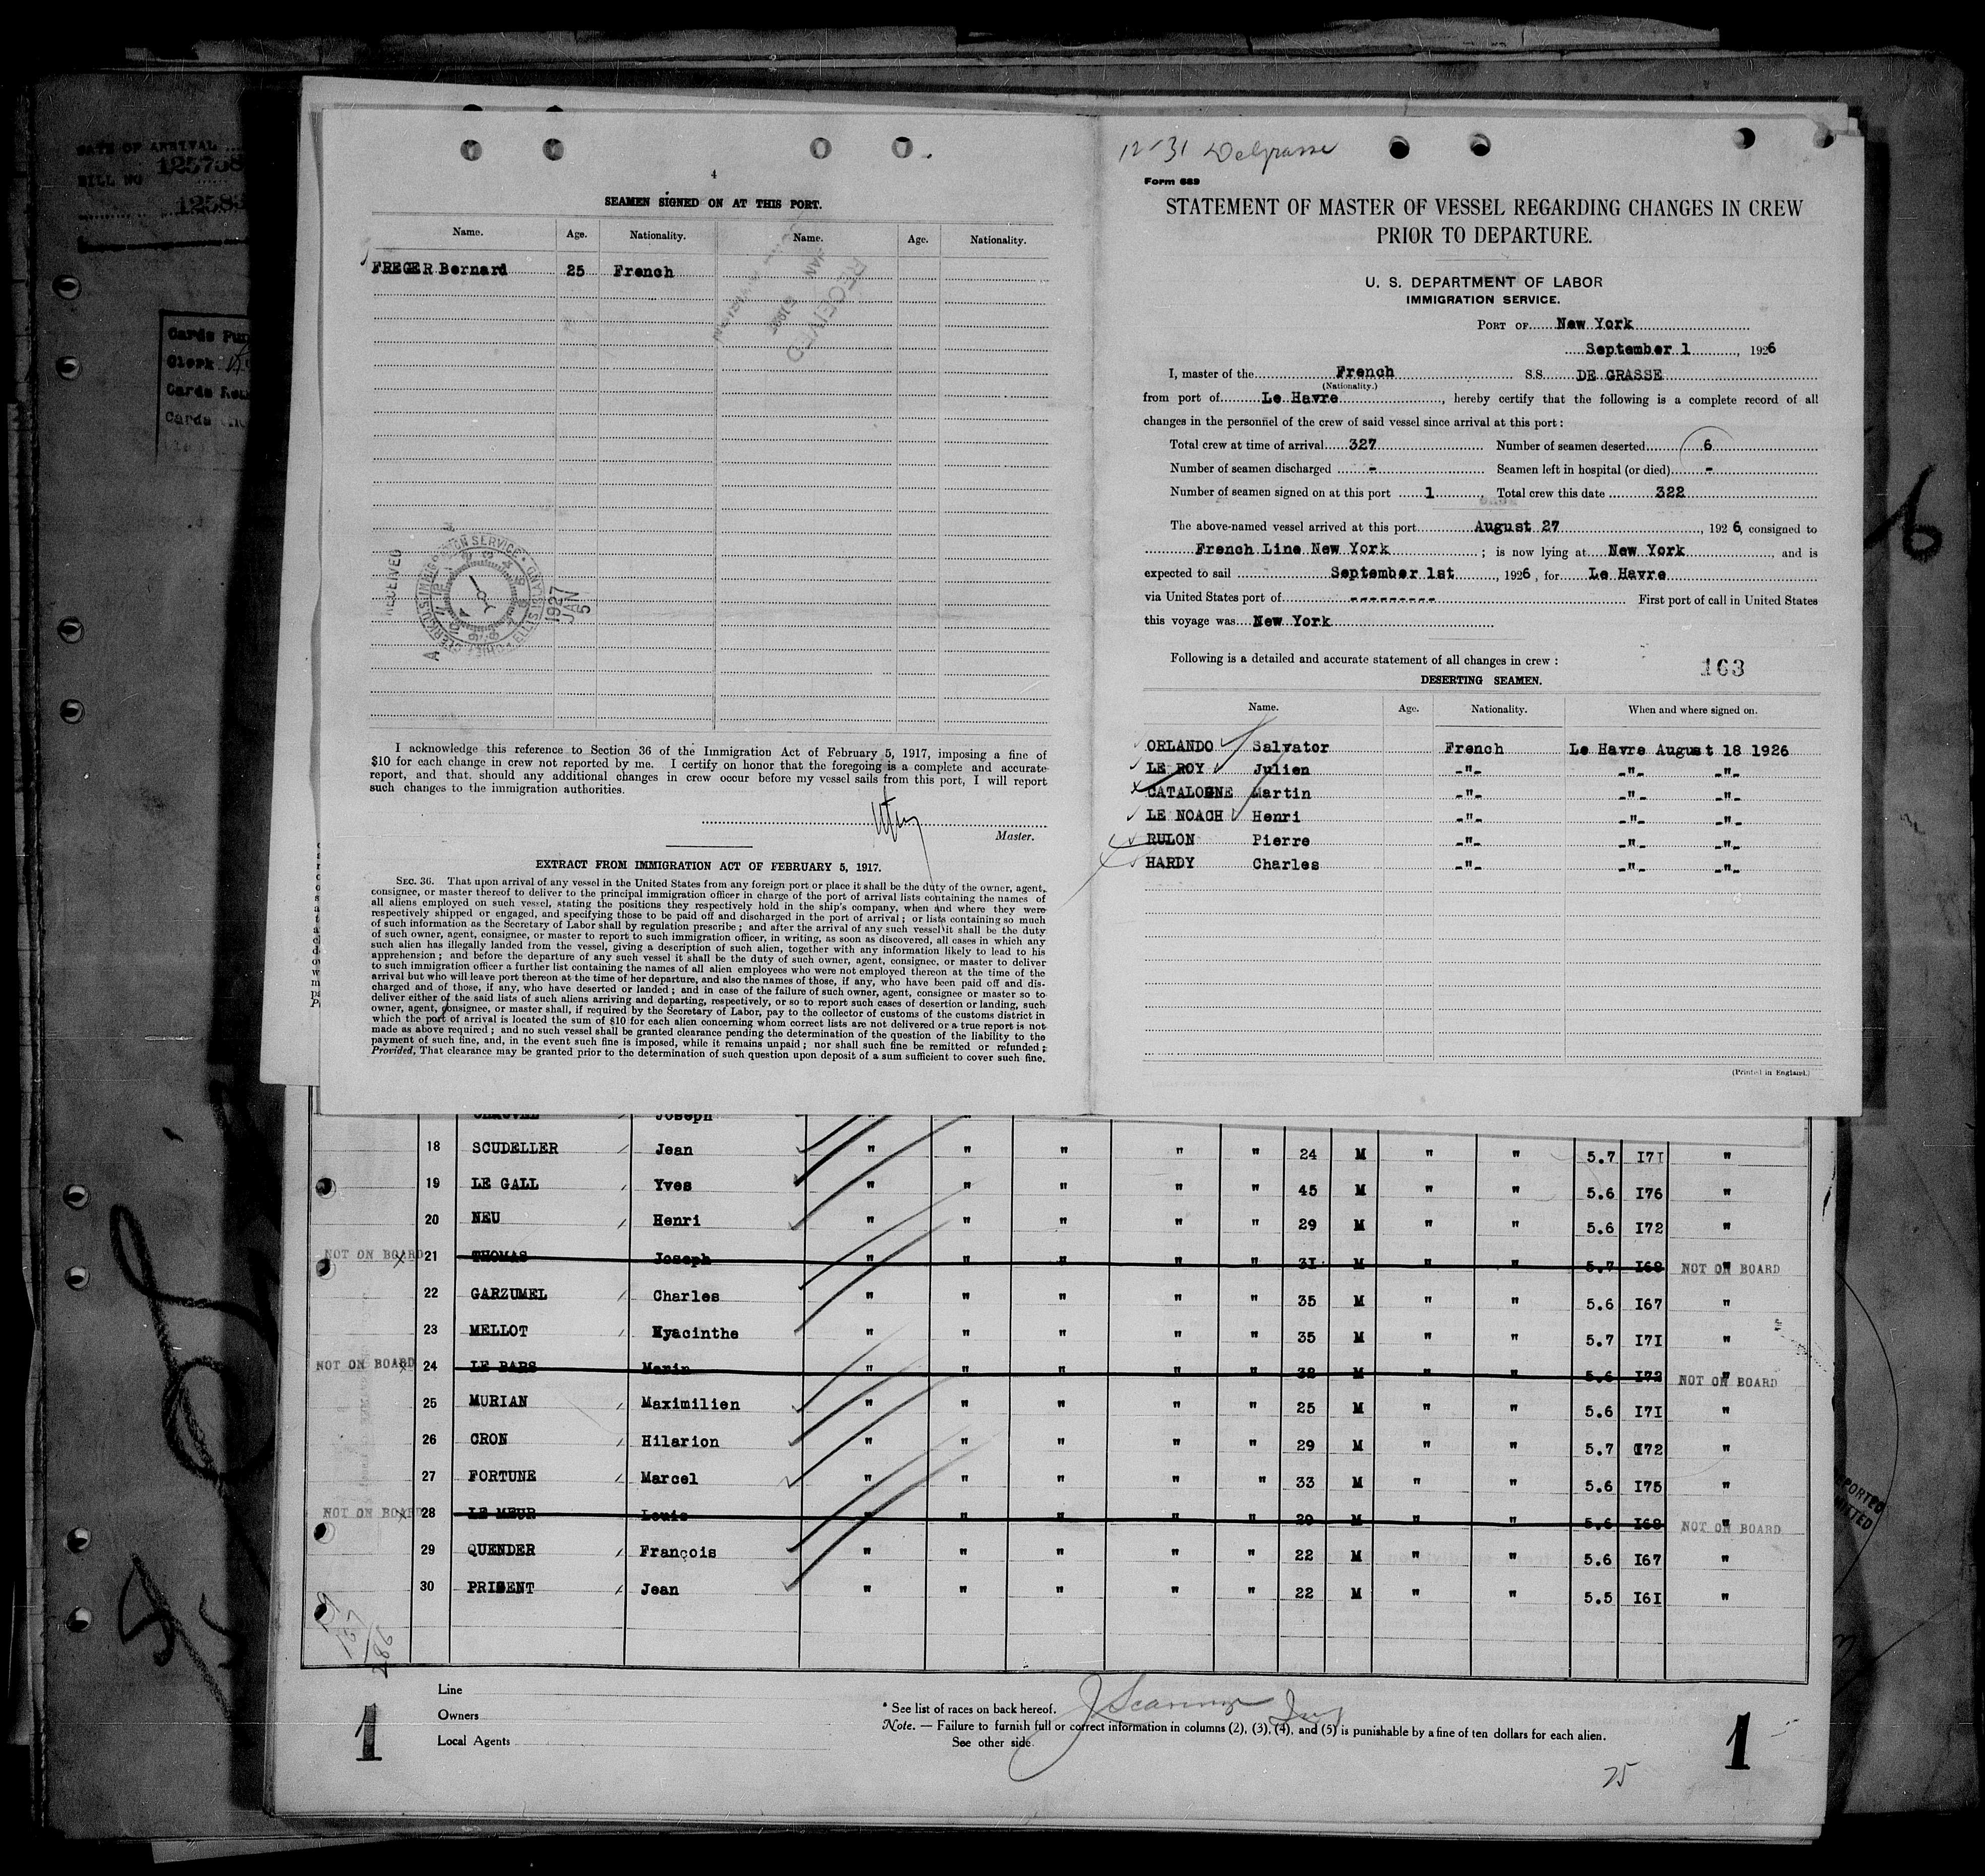 DATE OF ARRIVAL
BILL NO 125758
Cards Pun
Clerk
Cards
Cards
4
SEAMEN SIGNED ON AT THIS PORT.
Name. Age. Nationality. Name. Age. Nationality.
FREGER Bernard 25 French
RECEIVED
RECEIVED
ELLIS ISLAND
1927
JAN
5
I acknowledge this reference to Section 36 of the Immigration Act of February 5, 1917, imposing a fine of
$10 for each change in crew not reported by me. I certify on honor that the foregoing is a complete and accurate
report, and that. should any additional changes in crew occur before my vessel sails from this port, I will report
such changes to the immigration authorities.
Master.
EXTRACT FROM IMMIGRATION ACT OF FEBRUARY 5, 1917.
SEC. 36. That upon arrival of any vessel in the United States from any foreign port or place it shall be the duty of the owner, agent,
consignee, or master thereof to deliver to the principal immigration officer in charge of the port of arrival lists containing the names of
all aliens employed on such vessel, stating the positions they respectively hold in the ship's company, when and where they were
respectively shipped or engaged, and specifying those to be paid off and discharged in the port of arrival; or lists containing so much
of such information as the Secretary of Labor shall by regulation prescribe; and after the arrival of any such vessel it shall be the duty
of such owner, agent, consignee, or master to report to such immigration officer, in writing, as soon as discovered, all cases in which any
such alien has illegally landed from the vessel, giving a description of such alien, together with any information likely to lead to his
apprehension; and before the departure of any such vessel it shall be the duty of such owner, agent, consignee, or master to deliver
to such immigration officer a further list containing the names of all alien employees who were not employed thereon at the time of the
arrival but who will leave port thereon at the time of her departure, and also the names of those, if any, who have been paid off and dis-
charged and of those, if any, who have deserted or landed; and in case of the failure of such owner, agent, consignee or master so to
deliver either of the said lists of such aliens arriving and departing, respectively, or so to report such cases of desertion or landing, such
owner, agent, consignee, or master shall, if required by the Secretary of Labor, pay to the collector of customs of the customs district in
which the port of arrival is located the sum of $10 for each alien concerning whom correct lists are not delivered or a true report is not
made as above required; and no such vessel shall be granted clearance pending the determination of the question of the liability to the
payment of such fine, and, in the event such fine is imposed, while it remains unpaid; nor shall such fine be remitted or refunded:
Provided, That clearance may be granted prior to the determination of such question upon deposit of a sum sufficient to cover such fine.
12-31 Delgrasse
Form 689
STATEMENT OF MASTER OF VESSEL REGARDING CHANGES IN CREW
PRIOR TO DEPARTURE.
U. S. DEPARTMENT OF LABOR
IMMIGRATION SERVICE.
PORT OF New York
September 1, 1926
I, master of the French S.S. DE GRASSE
(Nationality.)
from port of Le Havre, hereby certify that the following is a complete record of all
changes in the personnel of the crew of said vessel since arrival at this port:
Total crew at time of arrival 327 Number of seamen deserted 6
Number of seamen discharged - Seamen left in hospital (or died) -
Number of seamen signed on at this port 1 Total crew this date 322
The above-named vessel arrived at this port August 27, 1926, consigned to
French Line New York; is now lying at New York, and is
expected to sail September 1st, 1926, for Le Havre
via United States port of --------- First port of call in United States
this voyage was New York
Following is a detailed and accurate statement of all changes in crew: 163
DESERTING SEAMEN.
Name. Age. Nationality. When and where signed on.
ORLANDO Salvator French Le Havre August 18 1926
LE ROY Julien -"- -"- -"-
CATALOGNE Martin -"- -"- -"-
LE NOACH Henri -"- -"- -"-
RULON Pierre -"- -"- -"-
HARDY Charles -"- -"- -"-
(Printed in England.)
6
Joseph " "
18 SCUDELLER Jean " " " " " 24 M " " 5.7 I7I "
19 LE GALL Yves " " " " " 45 M " " 5.6 I76 "
20 NEU Henri " " " " " 29 M " " 5.6 I72 "
NOT ON BOARD x 21 THOMAS Joseph " " " " " 3I M " " 5.7 I68 " NOT ON BOARD
22 GARZUMEL Charles " " " " " 35 M " " 5.6 I67 "
23 MELLOT Hyacinthe " " " " " 35 M " " 5.7 I7I "
NOT ON BOARD x 24 LE BARS Marin " " " " " 32 M " " 5.6 I72 " NOT ON BOARD
25 MURIAN Maximilien " " " " " 25 M " " 5.6 I7I "
26 CRON Hilarion " " " " " 29 M " " 5.7 I72 "
27 FORTUNE Marcel " " " " " 33 M " " 5.6 I75 "
NOT ON BOARD x 28 LE MEUR Louis " " " " " 29 M " " 5.6 I68 " NOT ON BOARD
29 QUENDER François " " " " " 22 M " " 5.6 I67 "
30 PRISENT Jean " " " " " 22 M " " 5.5 I6I "
Line
Owners
Local Agents
* See list of races on back hereof.
Note. — Failure to furnish full or correct information in columns (2), (3), (4), and (5) is punishable by a fine of ten dollars for each alien.
See other side.
1
1
75